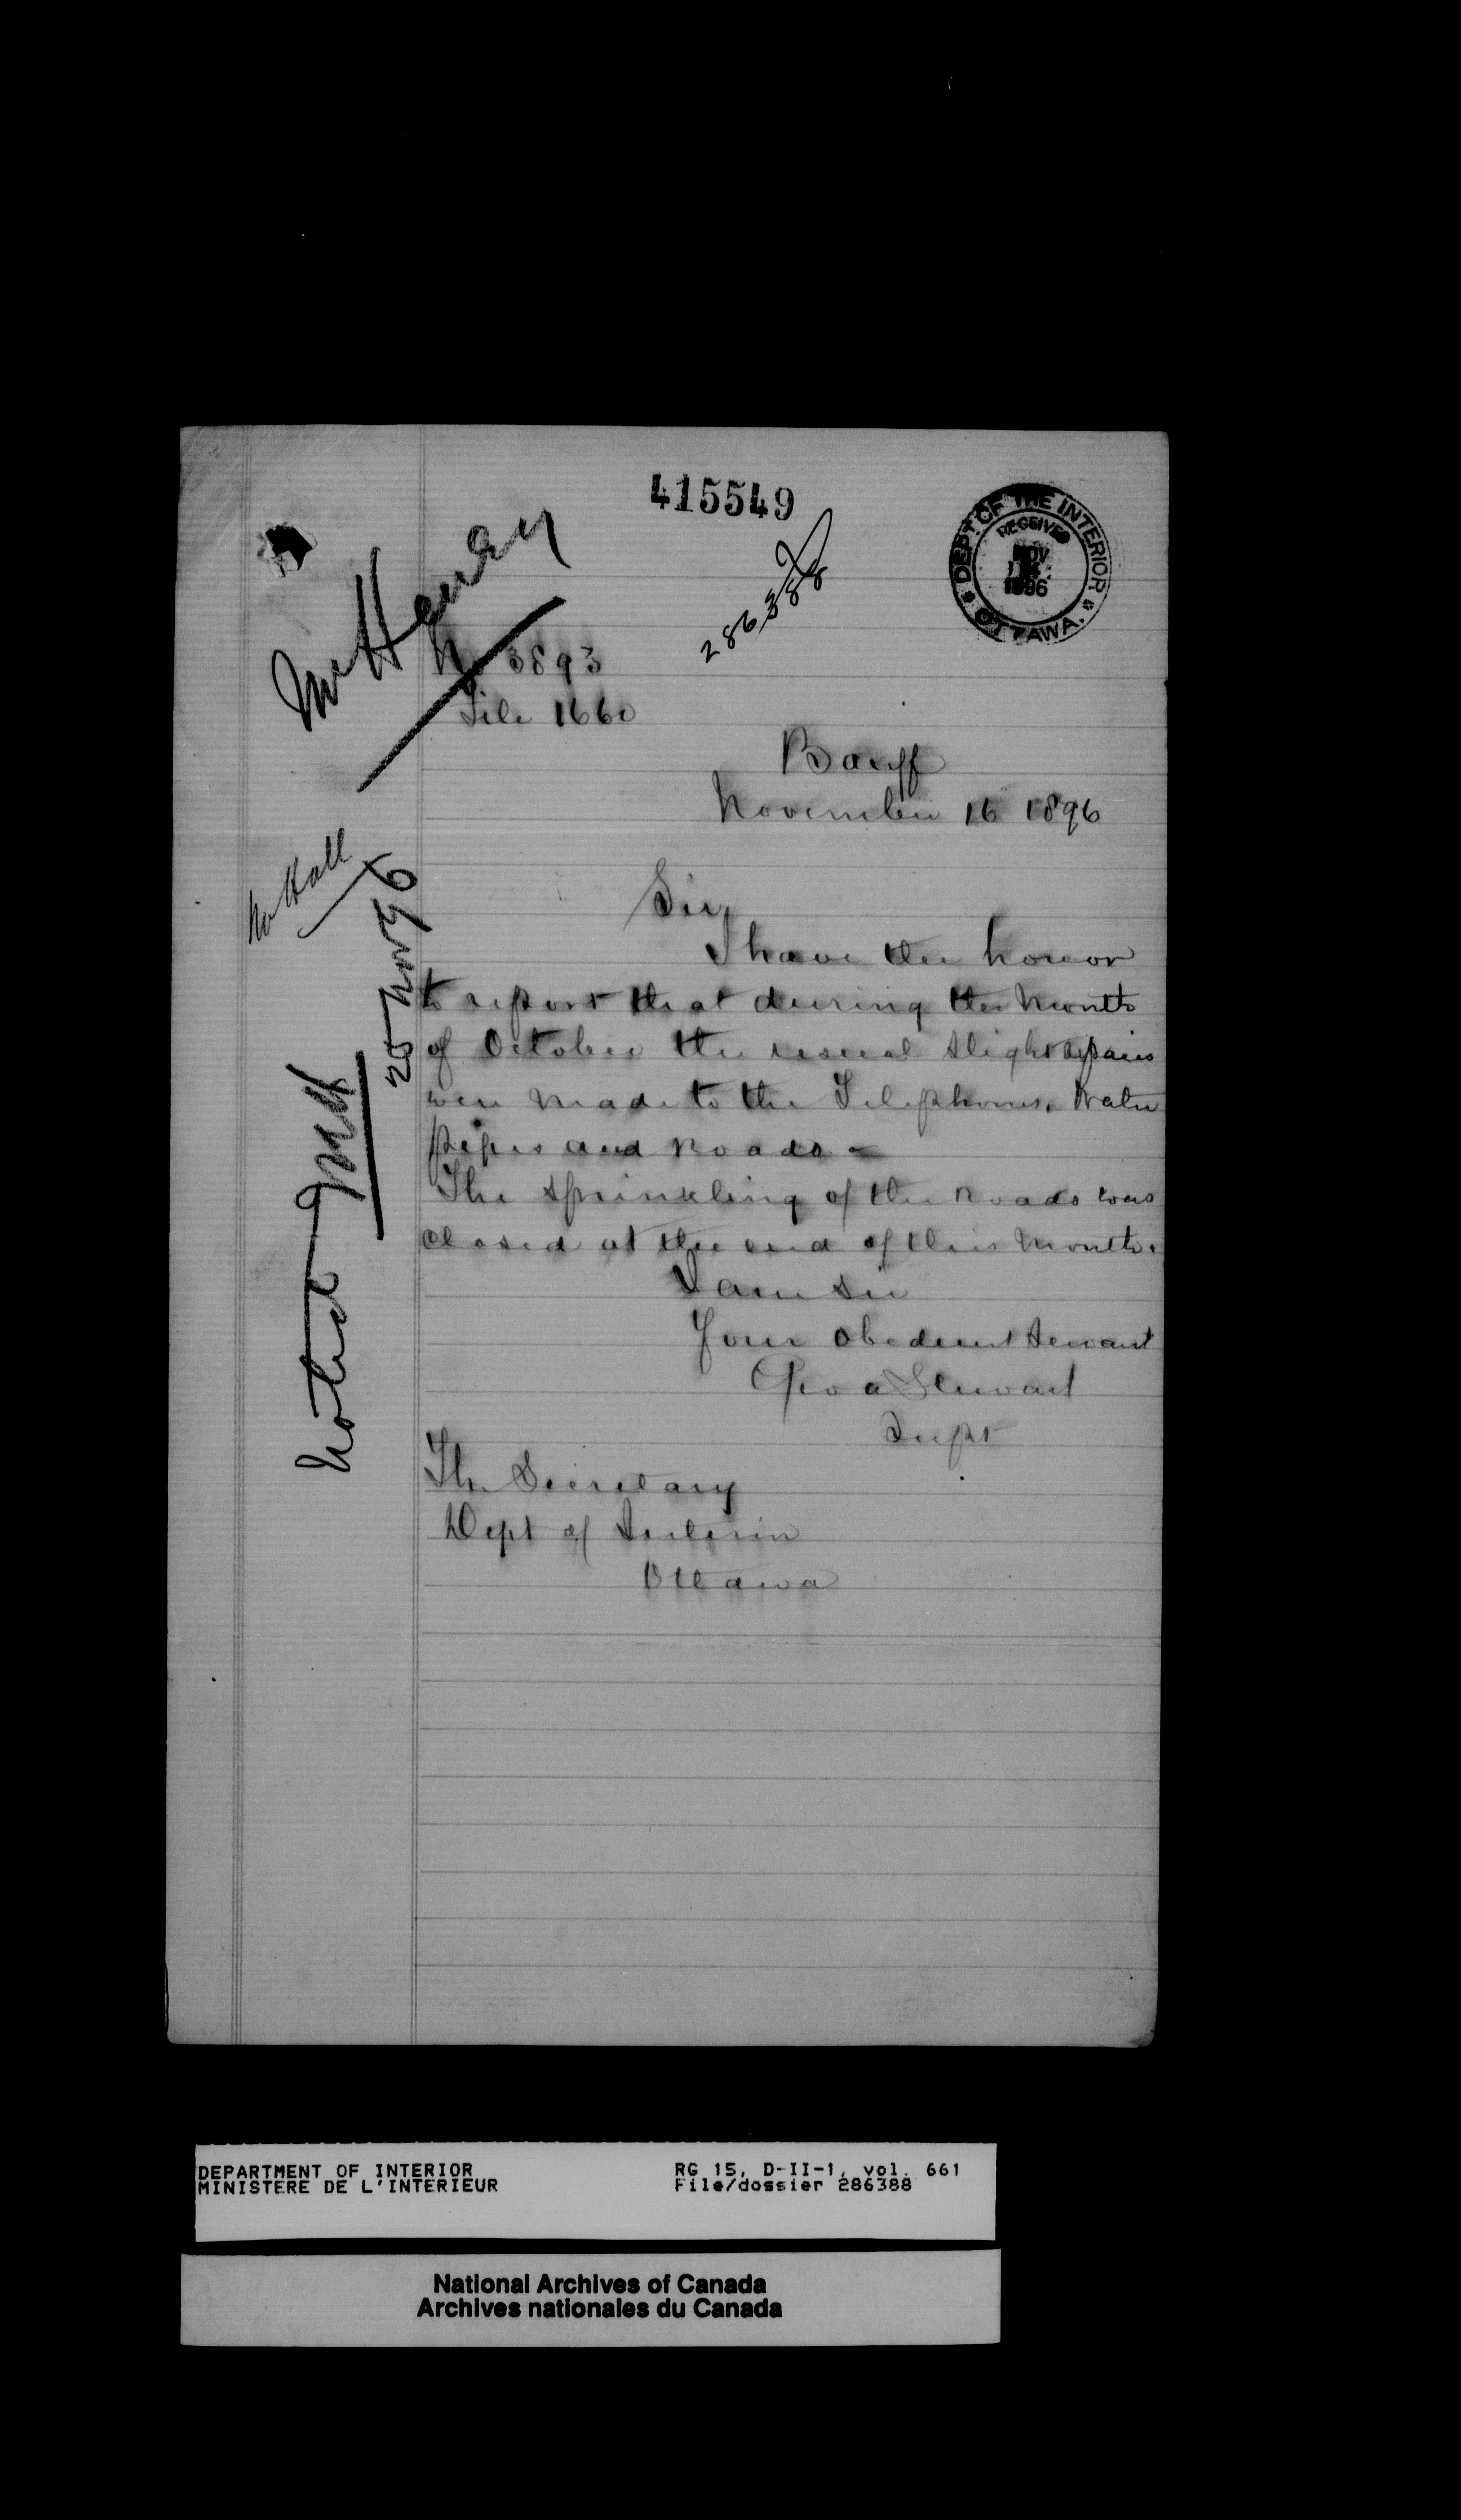 415549
DEPT OF THE INTERIOR
RECEIVED
NOV
1896
OTTAWA.
286388
Mr Henry
No 3893
File 1660
Banff
November 16 1896
Mr Hall
Sir,
I have the honor
to report that during the month
of October the usual slight repairs
were made to the Telephones, Water
pipes and Roads -
The sprinkling of the roads was
closed at the end of this month.
I am Sir
Your obedient servant
Geo a Stewart
Supt
The Secretary
Dept of Interior
Ottawa
Noted
25 Nov 96
DEPARTMENT OF INTERIOR
MINISTERE DE L'INTERIEUR
RG 15, D-II-1, vol. 661
File/dossier 286388
National Archives of Canada
Archives nationales du Canada